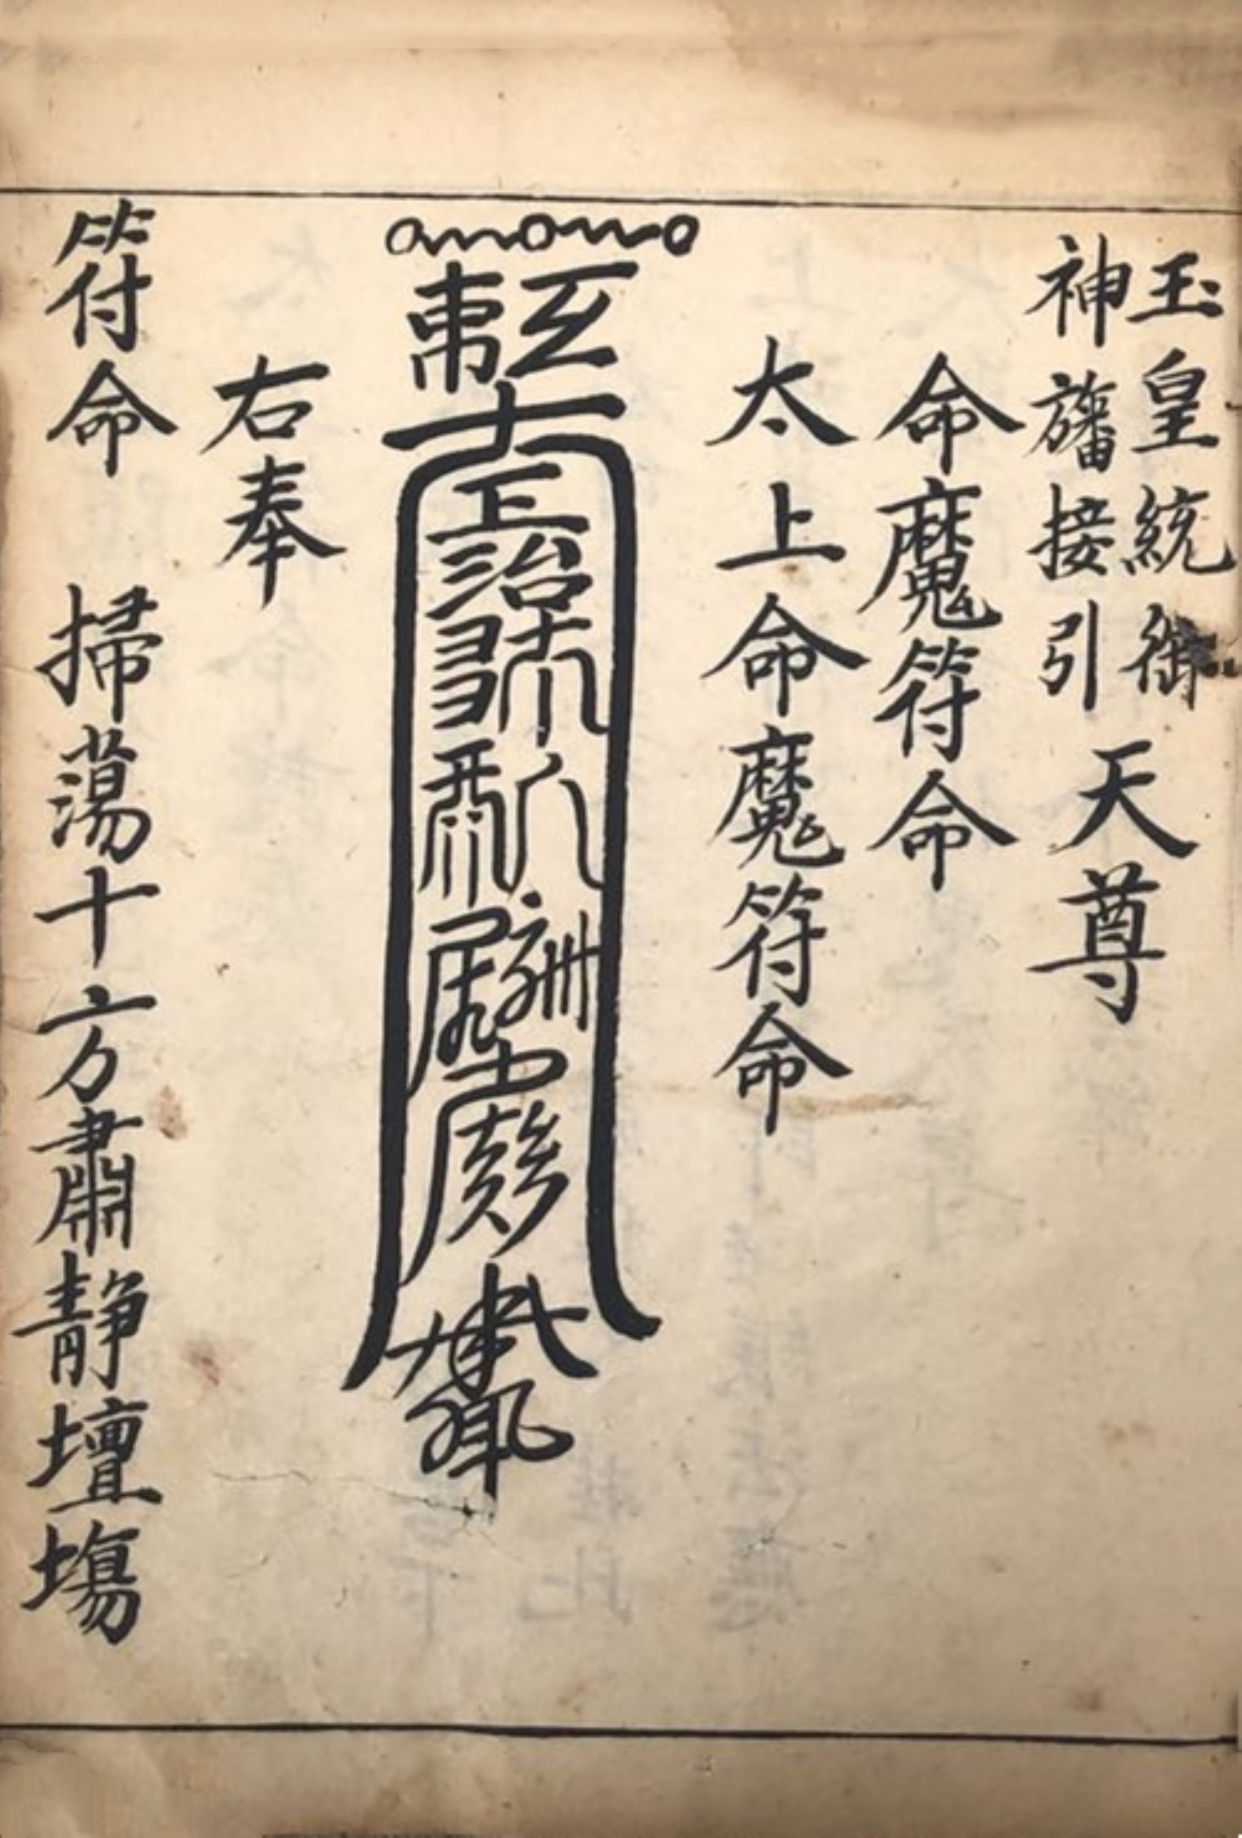 玉皇統御
神旛接引
天尊
命魔符命
太上命魔符命
右奉
符命　掃蕩十方肅靜壇塲